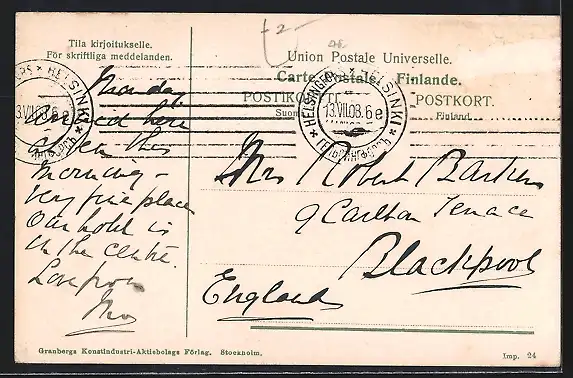 -2-
Tila kirjoitukselle.
För skriftliga meddelanden.
Union Postale Universelle.
Carte Postale. Finlande.
POSTIKORTTI. POSTKORT.
Suomi. Finland.
HELSINKI
13.VII.08. 6e
HELSINGFORS * HELSINKI
13.VII.08. 6e
Monday
arrived here
at ten this
morning -
Very fine place
Our hotel is
in the centre.
Love from
Mrs Robert Barker
9 Carlton Terrace
Blackpool
England
Granbergs Konstindustri-Aktiebolags Förlag. Stockholm.
Imp. 24